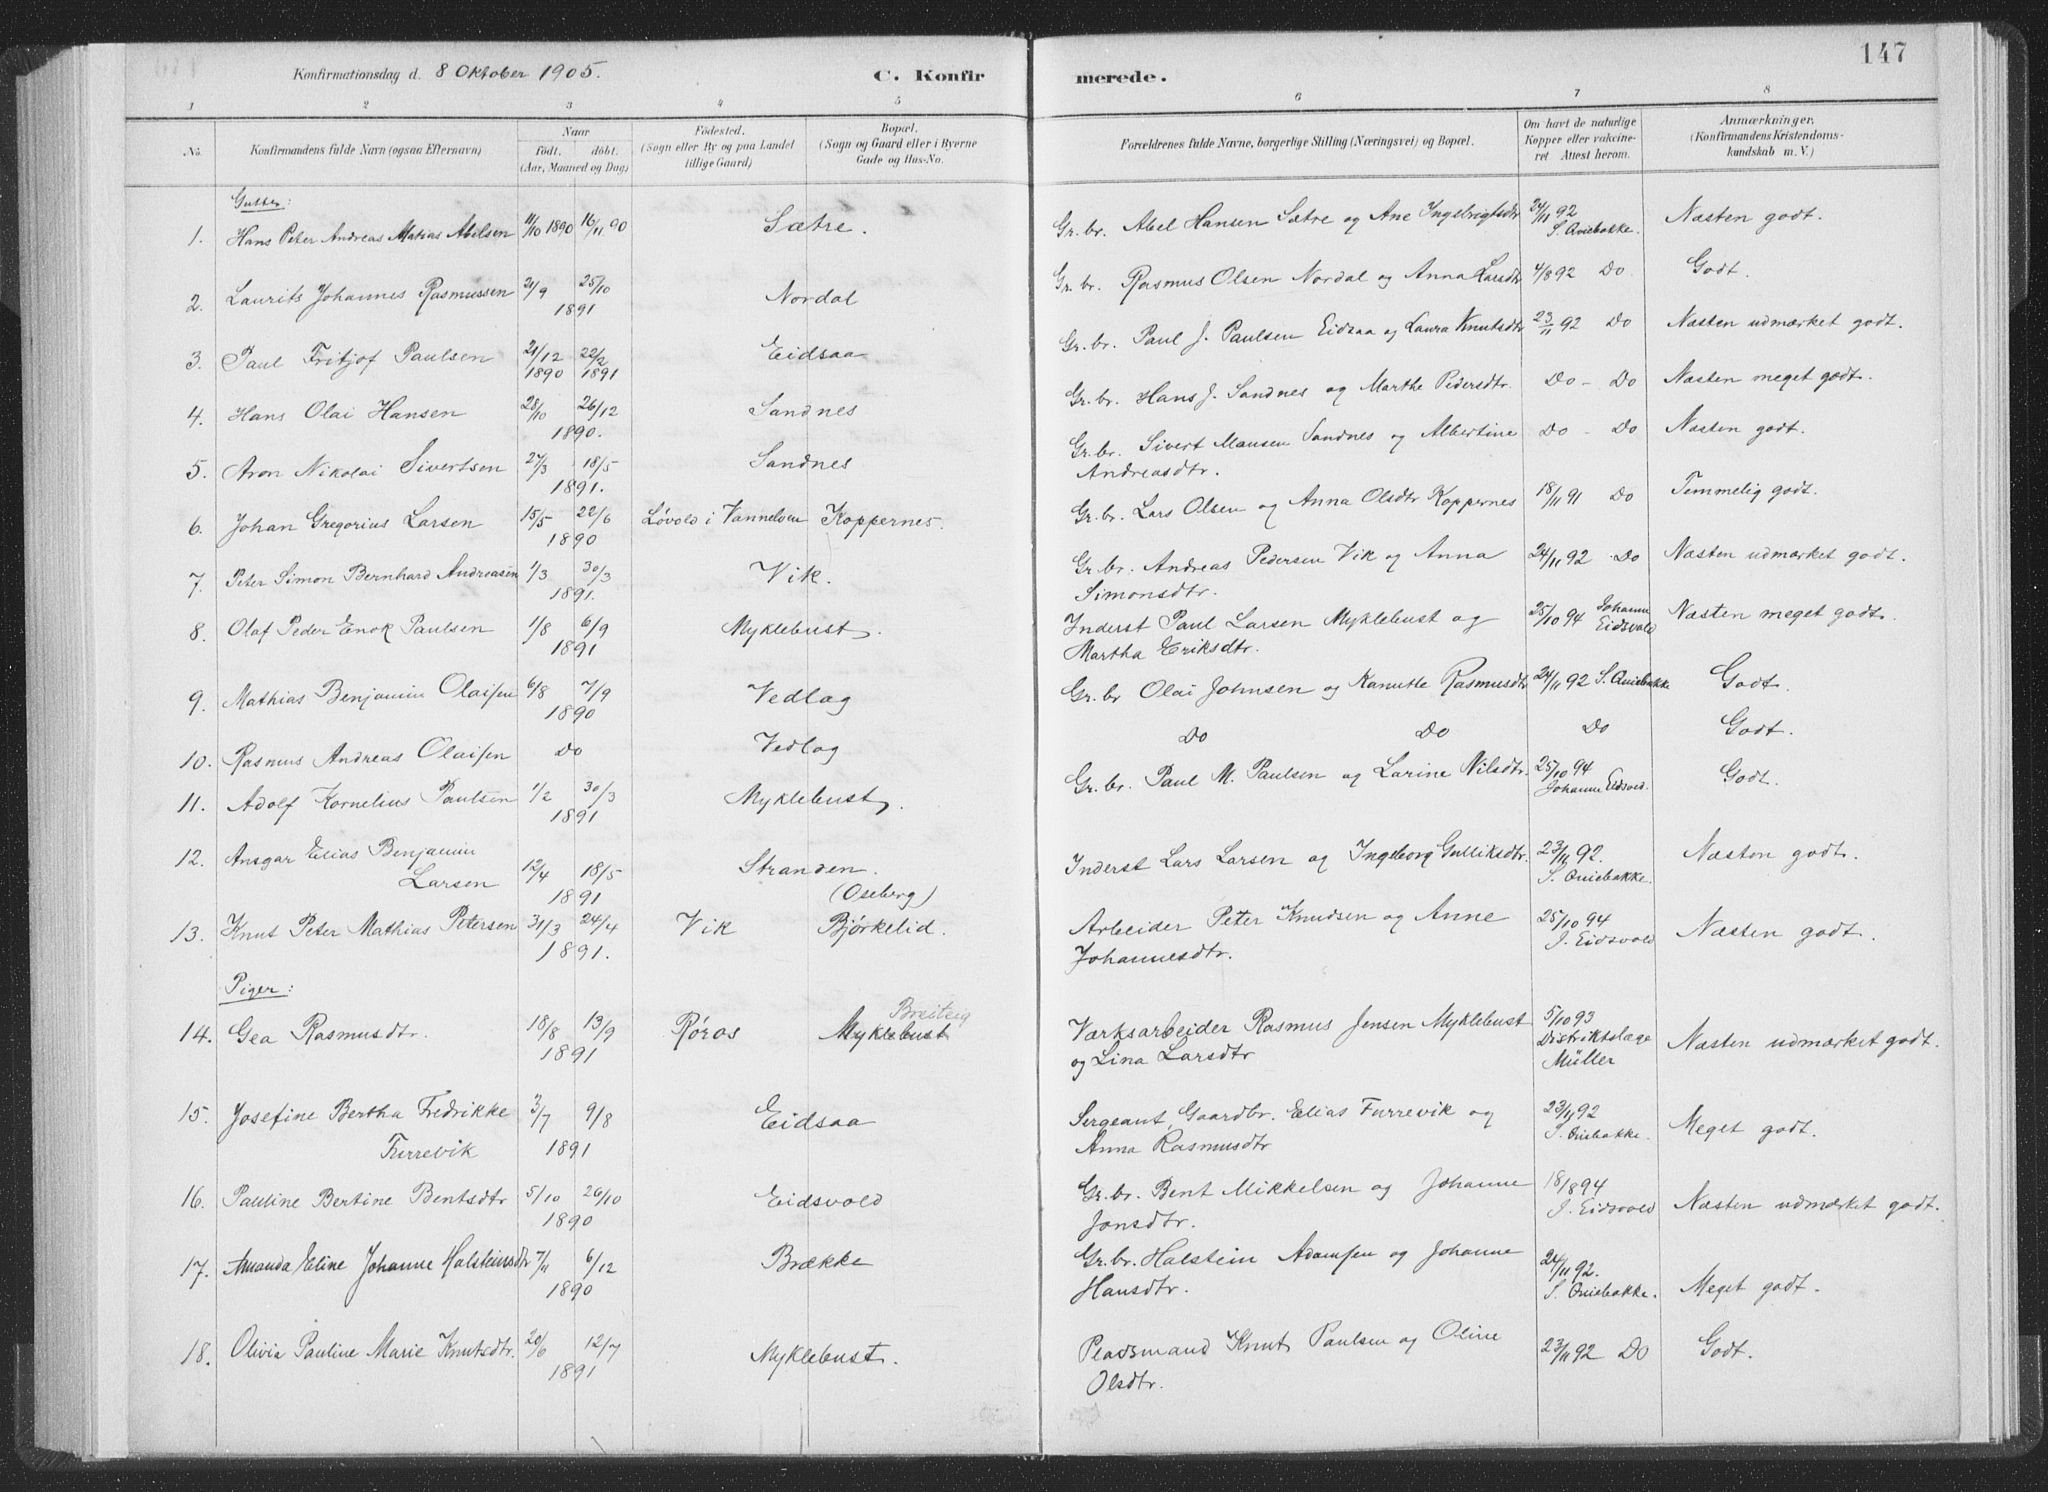 147
Konfirmationsdag d. 8 Oktober 1905. C. Konfirmerede.
1 2 3 4 5 6 7 8
No. Konfirmandens fulde Navn (ogsaa Efternavn) Naar født. døbt. (Aar, Maaned og Dag) Fødested. (Sogn eller By og paa Landet tillige Gaard) Bopæl. (Sogn og Gaard eller i Byerne Gade og Hus-No. Forældrenes fulde Navne, borgerlige Stilling (Næringsvei) og Bopæl. Om havt de naturlige Kopper eller vakcineret Attest herom. Anmærkninger. (Konfirmandens Kristendomskundskab m. V.)
Gutter:
1. Hans Peter Andreas Matias Abelsen 11/10 1890 16/11 90 Sætre. Gr. br. Abel Hansen Sætre og Ane Ingebrigtsdtr 24/11 92 S. Aviebakke. Næsten godt.
2. Laurits Johannes Rasmussen 21/9 25/10 1891 Nordal Gr. br. Rasmus Olsen Nordal og Anna Larsdtr 4/8 92 Do Godt.
3. Paul Fritjof Paulsen 21/12 1890 22/2 1891 Eidsaa Gr. br. Paul J. Paulsen Eidsaa og Laura Knutsdtr 23/11 92 Do Næsten udmærket godt.
4. Hans Olai Hansen 28/10 26/12 1890. Sandnes Gr. br. Hans J. Sandnes og Marthe Pedersdtr. Do - Do Næsten meget godt.
5. Aron Nikolai Sivertsen 27/3 18/5 1891. Sandnes Gr. br. Sivert Mansen Sandnes og Albertine Andreasdtr. Do - Do Næsten godt.
6. Johan Gregorius Larsen 15/5 22/6 1890 Løvold i Vannelven Koppernes. Gr. br. Lars Olsen og Anna Olsdtr Koppernes 18/11 91 Do Temmelig godt.
7. Peter Simon Bernhard Andreasen 1/3 30/3 1891. Vik. Gr. br. Andreas Pedersen Vik og Anna Simonsdtr. 24/11 92 Do Næsten udmærket godt.
8. Olaf Peder Enok Paulsen 1/8 6/9 1891 Myklebust. Inderst Paul Larsen Myklebust og Martha Eriksdtr. 25/10 94 Johanne Eidsvold Næsten meget godt.
9. Mathias Benjamin Olaisen 6/8 7/9 1890 Vedlog Gr. br Olai Johnsen og Kanutte Rasmusdtr 24/11 92 S. Aviebakke Godt.
10. Rasmus Andreas Olaisen Do Vedlog Do Do Do Godt.
11. Adolf Kornelius Paulsen 1/2 30/3 1891 Myklebust. Gr. br. Paul M. Paulsen og Larine Nilsdtr. 25/10 94 Johanne Eidsvold. Godt.
12. Ansgar Elias Benjamin Larsen 12/4 18/5 1891 Stranden. (Oseberg) Inderst Lars Larsen og Ingeborg Gulliksdtr. 23/11 92. S. Aviebakke. Næsten godt.
13. Knut Peter Mathias Petersen 31/3 24/4 1891. Vik Bjørkelid. Arbeider Peter Knudsen og Anne Johannesdtr. 25/10 94 J. Eidsvold Næsten godt.
Piger:
14. Gea Rasmusdtr. 18/8 13/9 1891 Røros Breiteig Myklebust Værksarbeider Rasmus Jensen Myklebust og Lina Larsdtr 5/10 93 Distriktslæge Müller Næsten udmærket godt.
15. Josefine Bertha Fredrikke Furrevik 3/7 9/8 1891 Eidsaa Sergeant, Gaardbr. Elias Furrevik og Anna Rasmusdtr 23/11 92 S. Aviebakke. Meget godt.
16. Pauline Bertine Bentsdtr 5/10 26/10 1890 Eidsvold Gr. br. Bent Mikkelsen og Johanne Jonsdtr. 18/8 94 J. Eidsvold Næsten udmærket godt.
17. Amanda Eline Johanne Halsteinsdtr 7/11 6/12 1890 Brække Gr. br. Halstein Adamsen og Johanne Hansdtr. 24/11 92. S. Aviebakke. Meget godt.
18. Olivia Pauline Marie Knutsdtr. 20/6 12/7 1891 Myklebust. Pladsmand Knut Paulsen og Oline Olsdtr. 23/11 92 Do Godt.